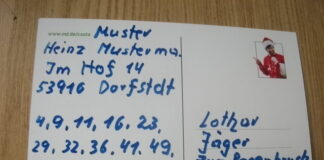 Muster
Heinz Musterma.
Im Hof 14
53916 Dorfstdt
4,9,11,16,23,
29,32,36,41,49,
Lothar
Jäger